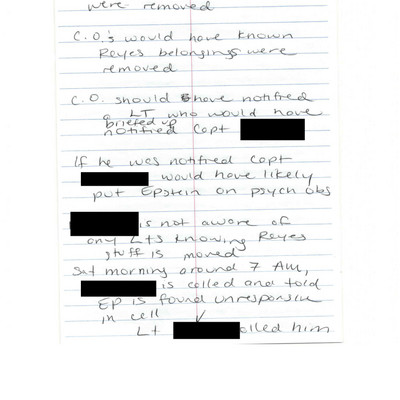 were removed
C.O.'s would have known
Reyes belongings were
removed
C.O. should have notified
a LT who would have
briefed up
notified Capt
If he was notified Capt
would have likely
put Epstein on psych obs
is not aware of
any Lts knowing Reyes
stuff is moved
Sat morning around 7 AM,
is called and told
EP is found unresponsive
in cell
Lt called him